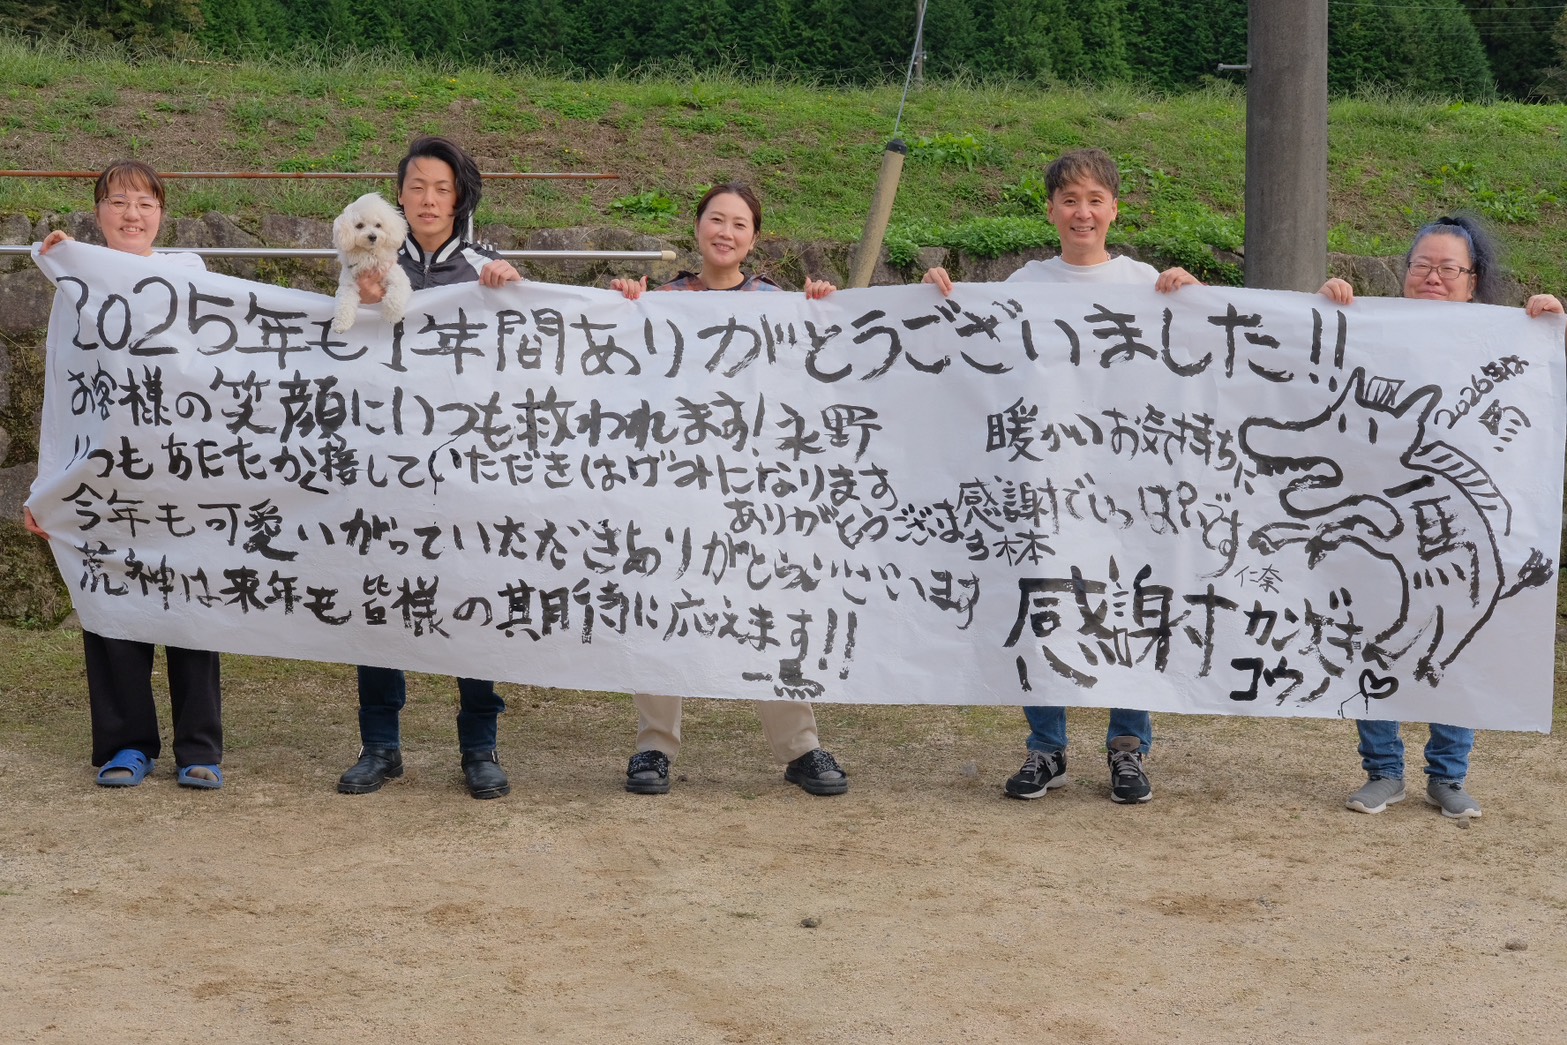 2025年も1年間ありがとうございました!!
お客様の笑顔にいつも救われます!永野
いつもあたたか接していただきはげみになります
ありがとうございます 木本
今年も可愛いがっていただきありがとうございます
荒神は来年も皆様の期待に応えます!!
一馬
暖かいお気持ちに
感謝でいっぱいです
仁奈
感謝 カンシャ
コウジン
2026年は
馬